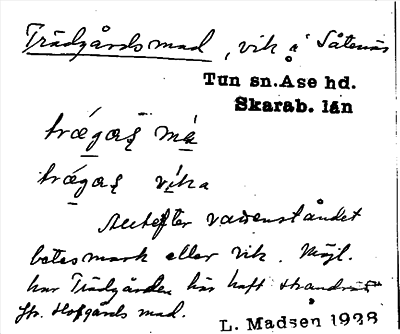 Trädgårdsmad, vik å Såtenäs
Tun sn. Ase hd.
Skarab. län
trǽgaʂ má
trǽgaʂ víka
Allt efter vattenståndet
betesmark eller vik. Möjl.
har Trädgården här haft strandrätt
Jfr. Hofgårds mad.
L. Madsen 1928